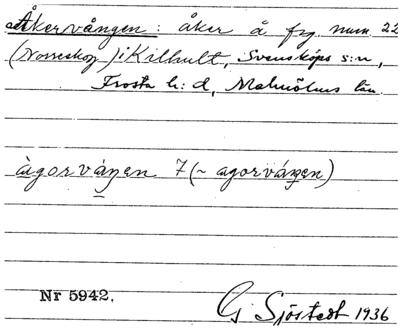 Åkervången: åker å frg. num. 22
(Norreskog) i Kilhult, Svensköps s:n,
Frosta h:d, Malmöhus län.
àgorváŋen 7 (~ agorváŋen)
Nr 5942.
G Sjöstedt 1936